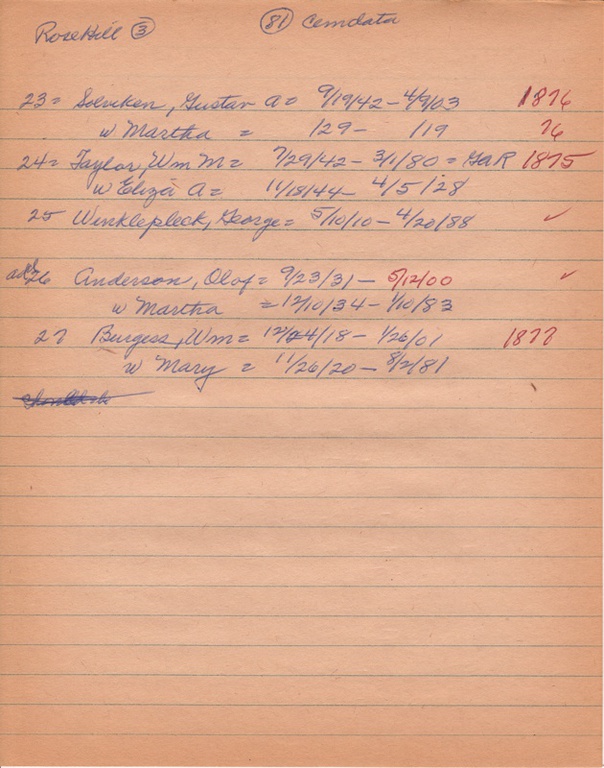 RoseHill ③ ㊶ Cemdata
23 = Solviken, Gustav A = 9/19/42 - 4/9/03 1876
w Martha = /29 - /19 76
24 = Taylor, Wm M = 7/29/42 - 3/1/80 = GAR 1875
w Eliza A = 11/18/44 - 4/5/28
25 Winklepleck, George = 5/10/10 - 4/20/88 ✓
26 Anderson, Olof = 9/23/31 - 5/12/00 ✓
w Martha = 12/10/34 - 1/10/83
27 Burgess, Wm = 12/24/18 - 1/26/01 1877
w Mary = 11/26/20 - 8/2/81